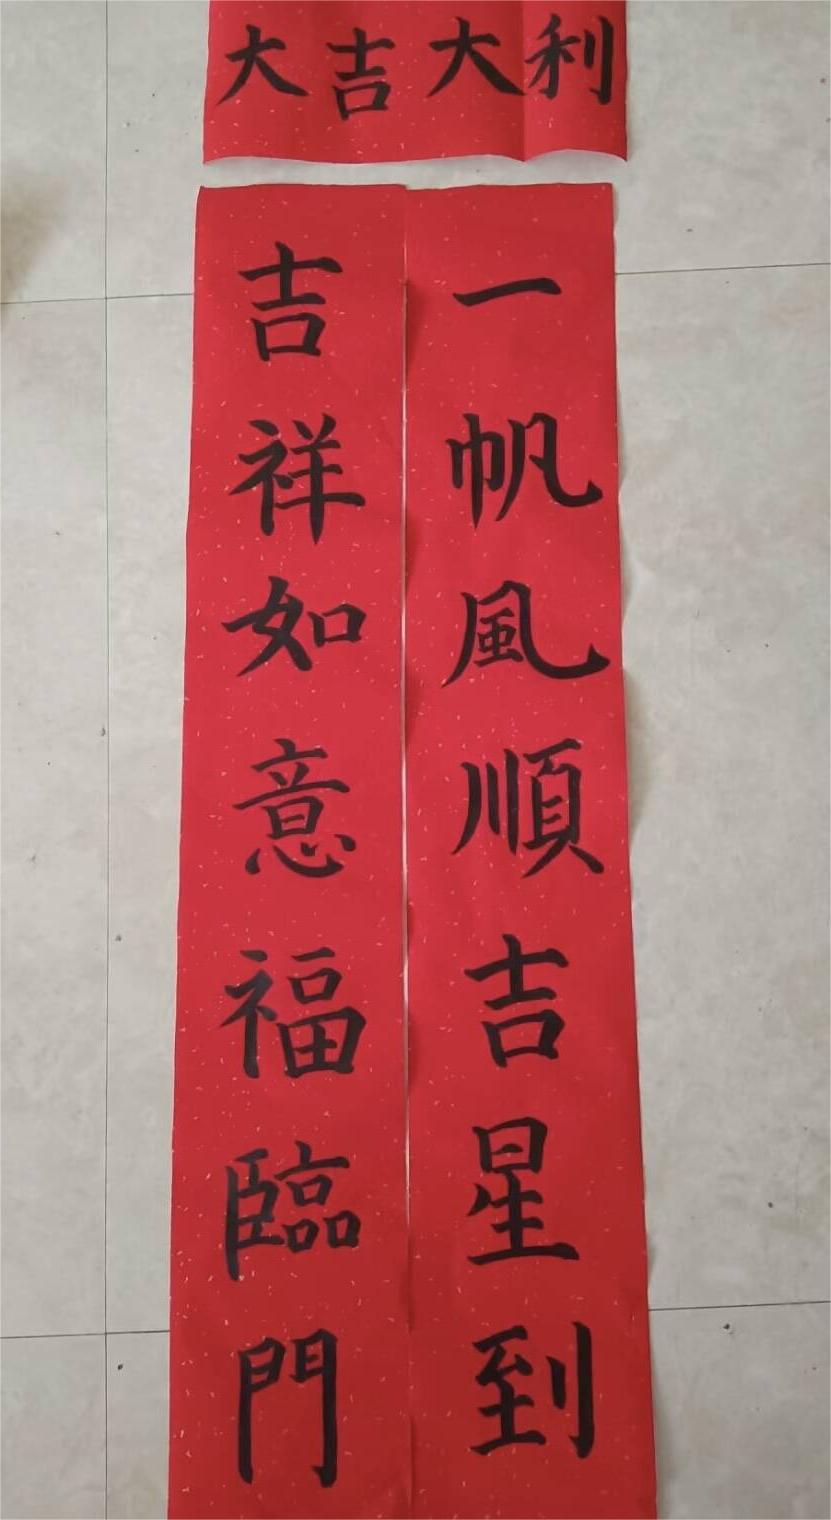 大吉大利
一帆風順吉星到
吉祥如意福臨門